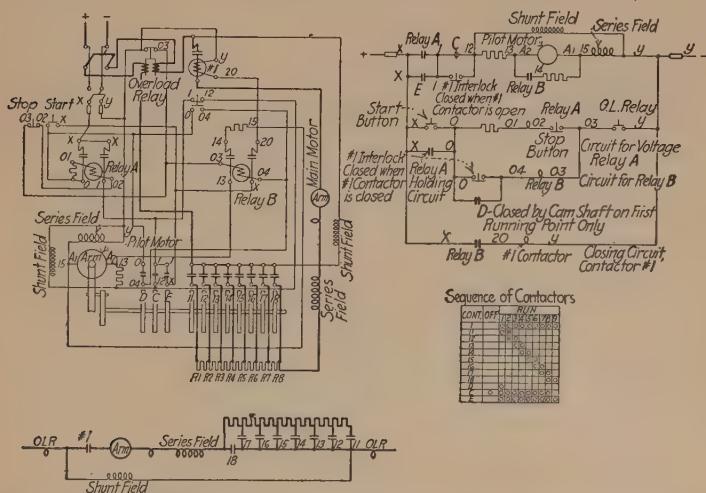 + −
03
Overload
Relay
#1
y
20
Stop Start
X
y
03 02 X
12
0 04
01
Relay A
02
15
14
20
03
13
04
X
Relay B
Main Motor
Arm
Series Field
Shunt Field
Pilot Motor
15 A1 Arm A2 13
D C E
11 12 13 14 15 16 17 18
R1 R2 R3 R4 R5 R6 R7 R8
Shunt Field
Series
Field
Shunt Field
Series Field
+ X Relay A 1 C 12 Pilot Motor 13 A2 A1 15 y y −
X E 1
#1 Interlock
Closed when #1
Contactor is open
Relay B 14
Start
Button
X 0
01 02
Relay A
Stop
Button
03
O.L. Relay
y
Circuit for Voltage
Relay A
X 0
#1 Interlock
Closed when
#1 Contactor
is closed
Relay A
Holding
Circuit
0 04 Relay B 03
Circuit for Relay B
D-Closed by Cam Shaft on First
Running Point Only
X 20 0 y
Relay B #1 Contactor
Closing Circuit,
Contactor #1
Sequence of Contactors
CONT. OFF RUN
1 2 3 4 5 6 7 8 9
OLR #1 Arm Series Field 18 17 16 15 14 13 12 11 OLR
Shunt Field